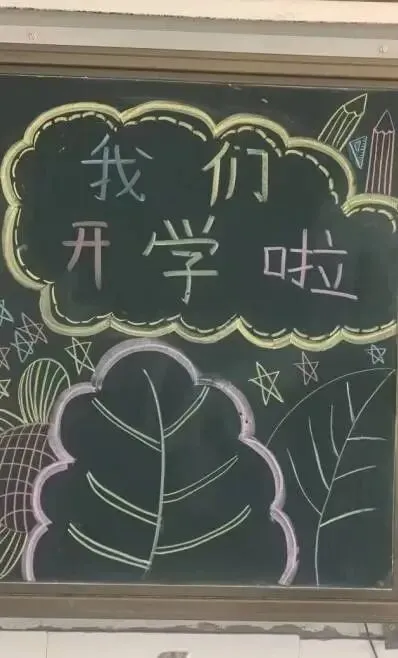 我们
开学啦